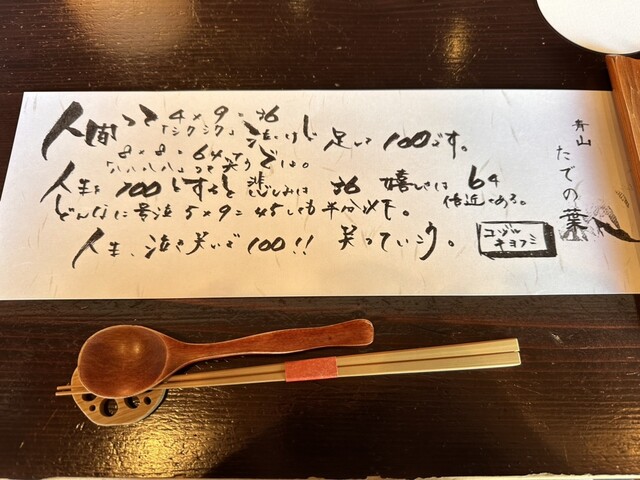 人間って 4×9=36
「シクシク」泣いけど 足して100です。
8×8=64って
「ハハハハ」って笑うでしょ。
人生を100とすると悲しみは 36 嬉しさは 64
倍近くある。
どんなに号泣 5×9=45しても半分以下。
人生、泣き笑いで100!! 笑っていこう。
コヅル
キヨフミ
青山
たでの葉